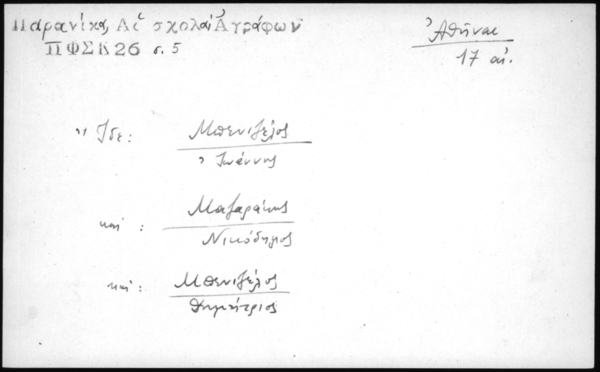 Παρανίκα, Αἱ σχολαὶ Ἀγράφων
ΠΦΣΚ26 σ. 5
Ἀθῆναι
17 αἰ.
Ἴδε: Μπενιζέλος
Ἰωάννης
καὶ: Μαζαράκης
Νικόδημος
καὶ: Μπενιζέλος
Δημήτριος